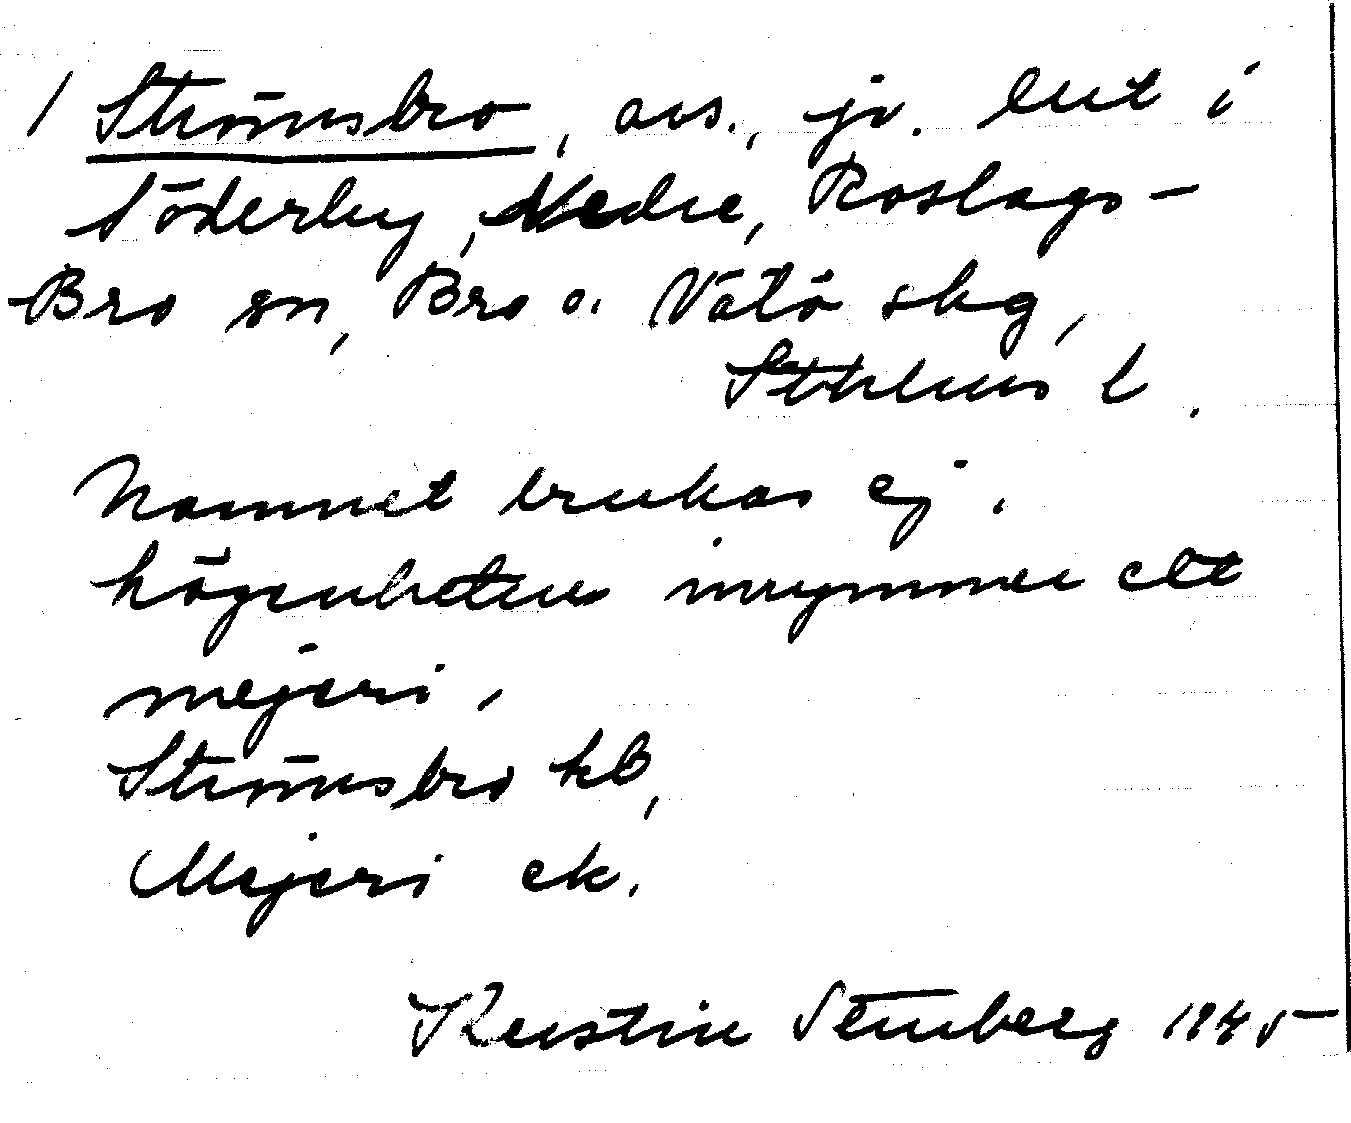 1 Strömsbro, avs., jv. lut i
Söderby, Nedre, Roslags-
Bro sn, Bro o. Vätö skg,
Sthlms l.
Namnet brukas ej.
Lägenheten inrymmer ett
mejeri.
Strömsbro kb,
Mejeri ek.
Kerstin Stenberg 1945